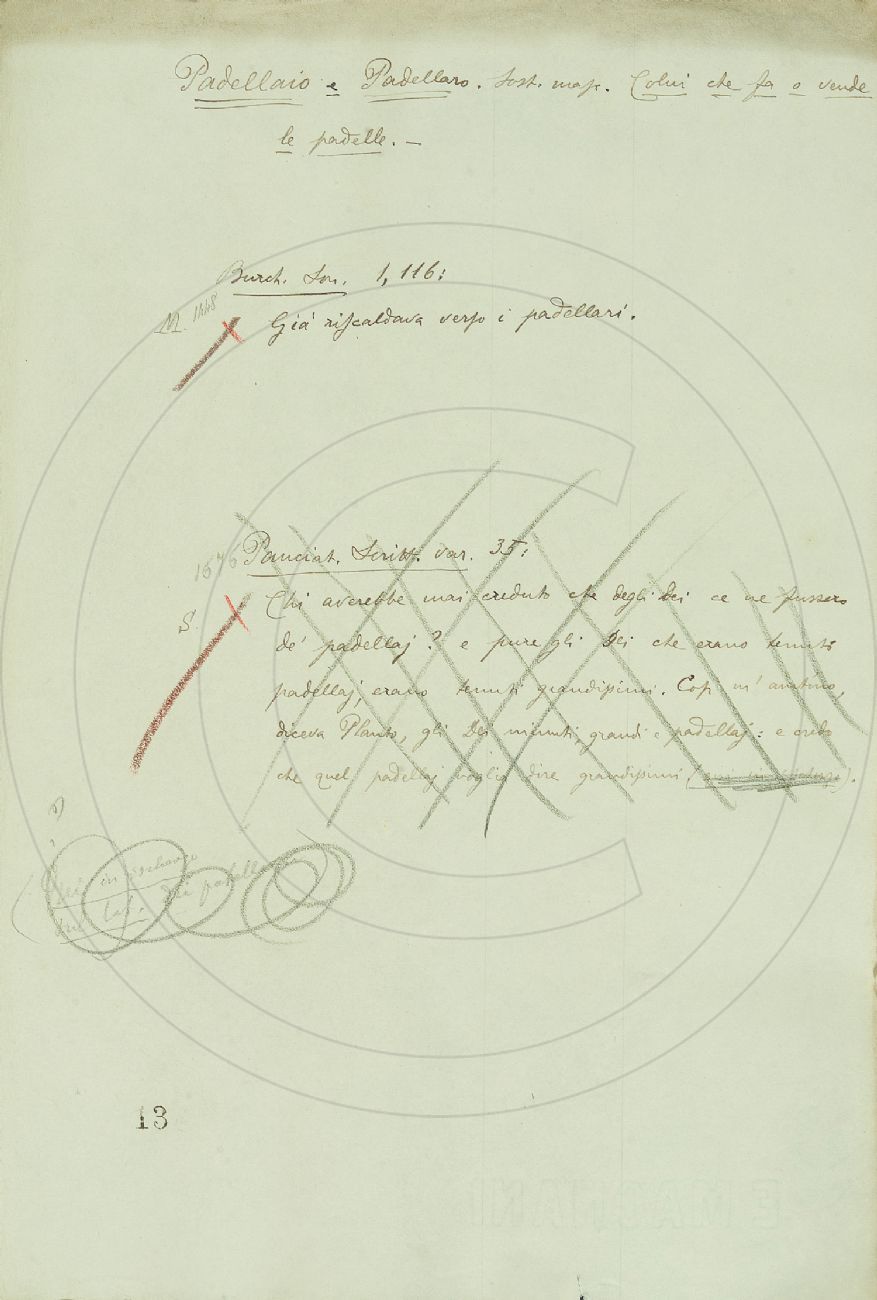 Padellaio e Padellaro. Sost. mas. Colui che fa o vende
le padelle. —
Burch. Son. 1, 116:
M. 1448
Già riscaldava verso i padellari.
1576 Panciat. Scritt. var. 35:
S.
Chi averebbe mai creduto che degli Dei ce ne fussero
de' padellaj? e pure gli Dei che erano tenuti
padellaj, erano tenuti grandissimi. Così m' avviso,
diceva Plauto, gli Dei minuti, grandi e padellaj: e credo
che quel padellaj voglia dire grandissimi
dei padellaj
13
E MAGNANI